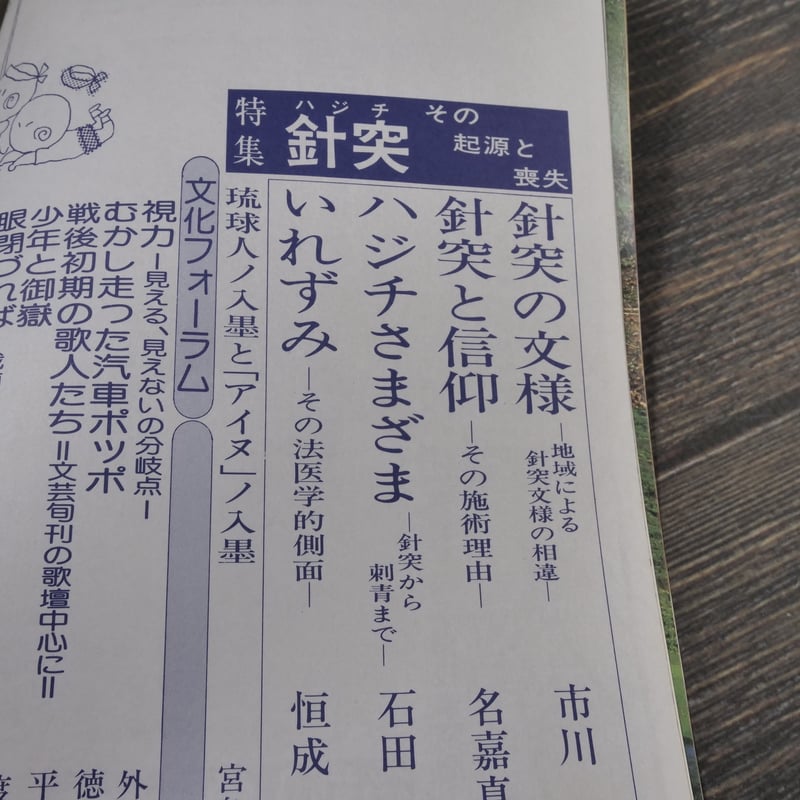 特集
針突
ハジチ
その
起源と
喪失
針突の文様
―地域による
針突文様の相違―
市川
針突と信仰
―その施術理由―
名嘉真
ハジチさまざま
―針突から
刺青まで―
石田
いれずみ
―その法医学的側面―
恒成
琉球人ノ入墨と「アイヌ」ノ入墨
宮
文化フォーラム
視力―見える、見えないの分岐点―
外
むかし走った汽車ポッポ
徳
戦後初期の歌人たち＝文芸旬刊の歌壇中心に＝
平
少年と御嶽
眼閉づれば